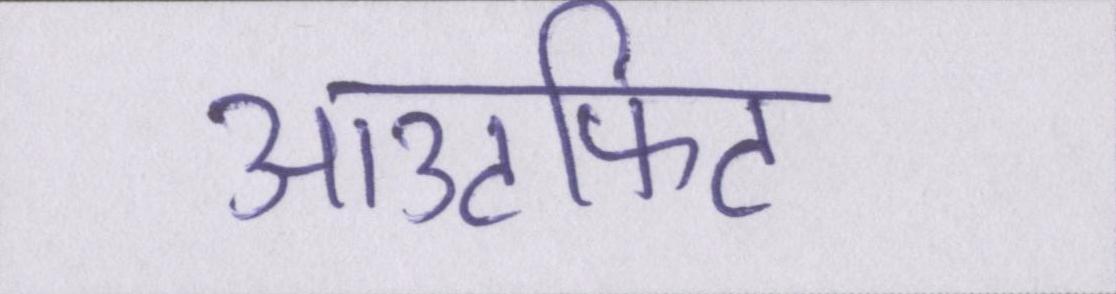 आउटफिट